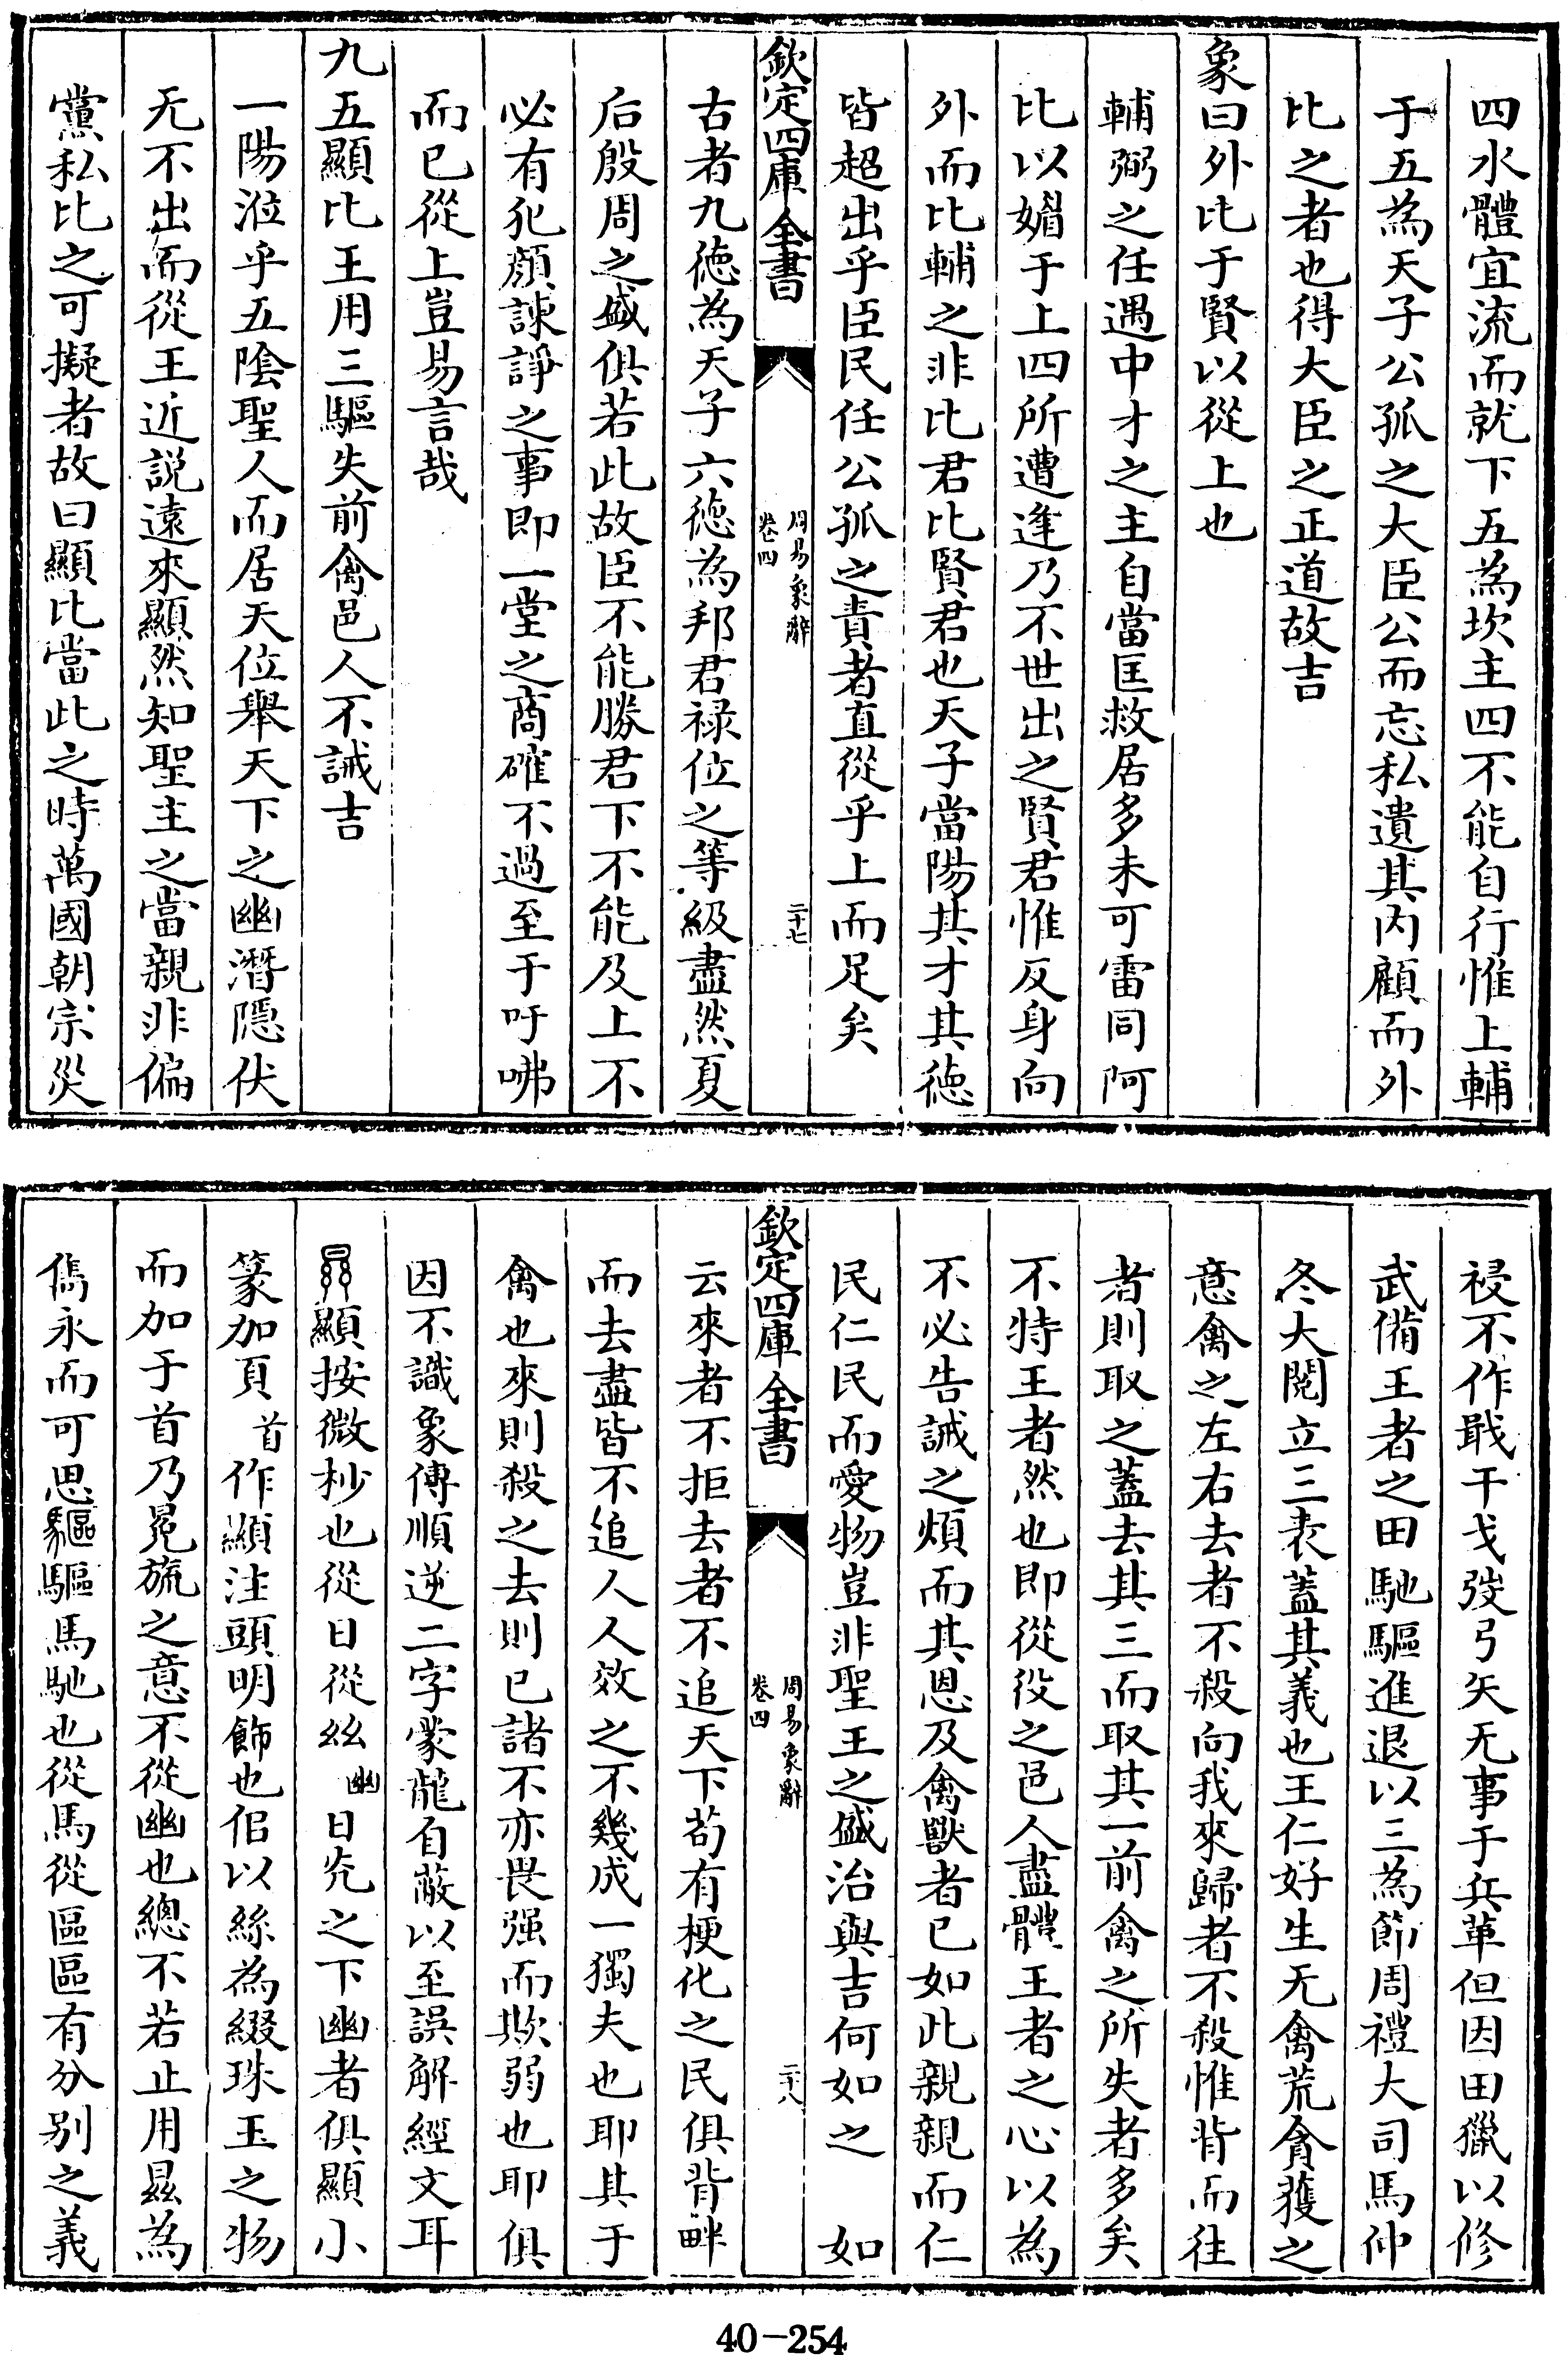 四水體宜流而就下五為坎主四不能自行惟上輔
于五為天子公孤之大臣公而忘私遺其内顧而外
比之者也得大臣之正道故吉
象曰外比于賢以從上也
輔弼之任遇中才之主自當匡救居多未可雷同阿
比以媚于上四所遭逢乃不世出之賢君惟反身向
外而比輔之非比君比賢君也天子當陽其才其徳
皆超出乎臣民任公孤之責者直從乎上而足矣
欽定四庫全書
周易象辭
卷四
二十七
古者九徳為天子六徳為邦君禄位之等級盡然夏
后殷周之盛俱若此故臣不能勝君下不能及上不
必有犯顔諫諍之事即一堂之商確不過至于吁咈
而已從上豈易言哉
九五顯比王用三驅失前禽邑人不誡吉
一陽涖乎五陰聖人而居天位舉天下之幽潛隱伏
无不出而從王近説遠來顯然知聖主之當親非偏
黨私比之可擬者故曰顯比當此之時萬國朝宗災
祲不作戢干戈弢弓矢无事于兵革但因田獵以修
武備王者之田馳驅進退以三為節周禮大司馬仲
冬大閱立三表蓋其義也王仁好生无禽荒貪獲之
意禽之左右去者不殺向我來歸者不殺惟背而往
者則取之蓋去其三而取其一前禽之所失者多矣
不特王者然也即從役之邑人盡體王者之心以為
不必告誡之煩而其恩及禽獸者已如此親親而仁
民仁民而愛物豈非聖王之盛治與吉何如之　如
欽定四庫全書
周易象辭
卷四
二十八
云來者不拒去者不追天下茍有梗化之民俱背畔
而去盡皆不追人人效之不幾成一獨夫也耶其于
禽也來則殺之去則已諸不亦畏强而欺弱也耶俱
因不識象傳順逆二字蒙蘢自蔽以至誤解經文耳
㬎顯按微杪也從日從絲幽日光之下幽者俱顯小
篆加頁首作顯注頭明飾也佀以絲為綴珠玉之物
而加于首乃冕旒之意不從幽也總不若止用㬎為
儁永而可思驅驅馬馳也從馬從區區有分别之義
40-254